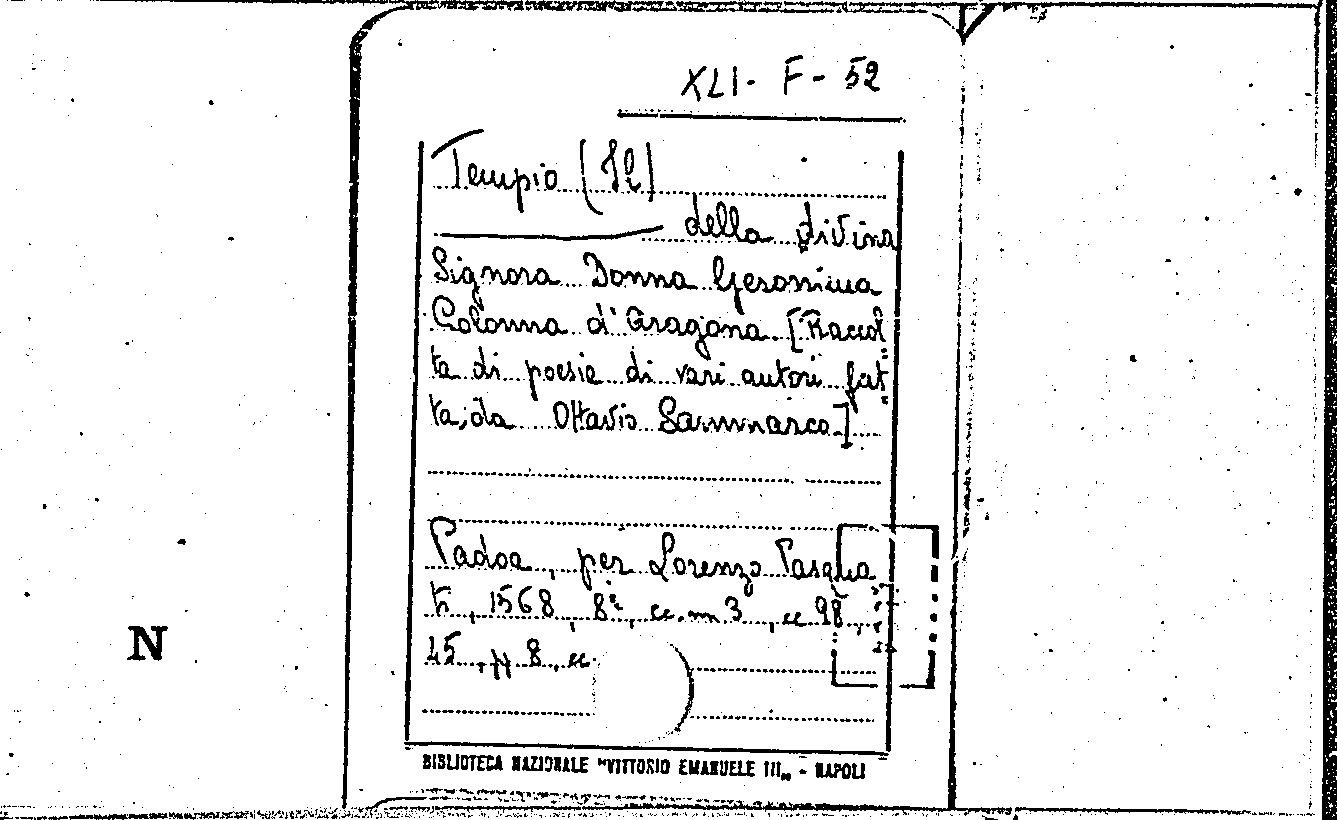 XLI - F - 52
Tempio (Il)
della divina
Signora Donna Geronima
Colonna d'Aragona [Raccol
ta di poesie di vari autori fat
ta, da Ottavio Sammarco]
Padoa, per Lorenzo Pasqua
ti, 1568, 8º, cc. nn 3, cc 98,
45, pp 8, cc.
N
BIBLIOTECA NAZIONALE "VITTORIO EMANUELE III„ - NAPOLI